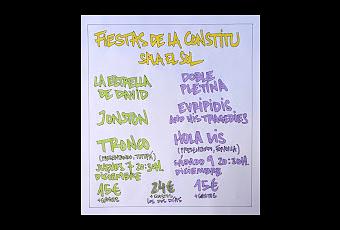 FIESTAS DE LA CONSTITU
SALA EL SOL
LA ESTRELLA
DE DAVID
JONSTON
TRONCO
JUEVES 7 20:30H.
DICIEMBRE
15€
+GASTOS
24€
+GASTOS
LOS DOS DÍAS
DOBLE
PLETINA
EVRIPIDIS
AND HIS TRAGEDIES
HOLA
SÁBADO 9 20:30H.
DICIEMBRE
15€
+GASTOS